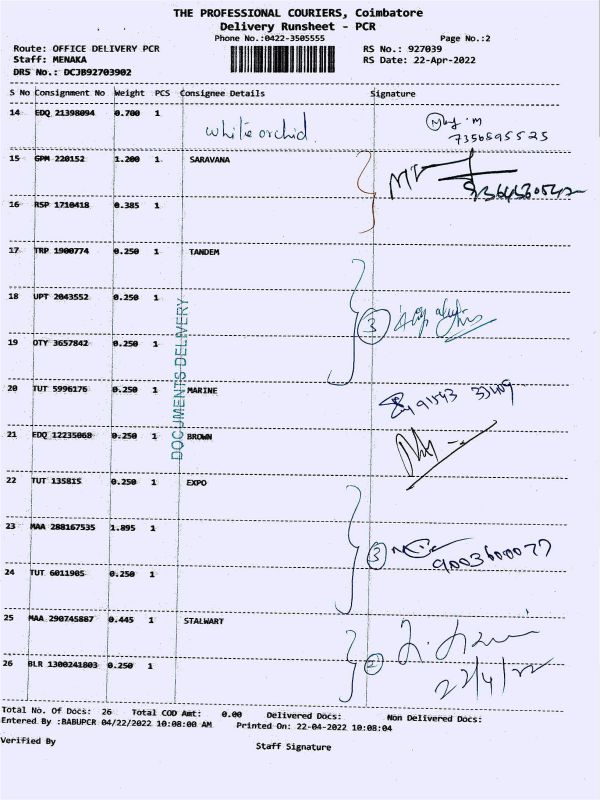 THE PROFESSIONAL COURIERS, Coimbatore
Delivery Runsheet - PCR
Phone No.:0422-3505555 Page No.:2
Route: OFFICE DELIVERY PCR RS No.: 927039
Staff: MENAKA RS Date: 22-Apr-2022
DRS No.: DCJB92703902
S No Consignment No Weight PCS Consignee Details Signature
14 EDQ 21398094 0.700 1 white orchid
7356595525
15 GPM 220152 1.200 1 SARAVANA
16 RSP 1710418 0.385 1
17 TRP 1900774 0.250 1 TANDEM
18 UPT 2043552 0.250 1
3
19 OTY 3657842 0.250 1
DOCUMENTS DELIVERY
20 TUT 5996176 0.250 1 MARINE
21 EDQ 12235068 0.250 1 BROWN
22 TUT 135815 0.250 1 EXPO
23 MAA 288167535 1.895 1
3 9003600077
24 TUT 6011905 0.250 1
25 MAA 290745887 0.445 1 STALWART
26 BLR 1300241803 0.250 1 2
22/4/22
Total No. Of Docs: 26 Total COD Amt: 0.00 Delivered Docs: Non Delivered Docs:
Entered By :BABUPCR 04/22/2022 10:08:00 AM Printed On: 22-04-2022 10:08:04
Verified By Staff Signature